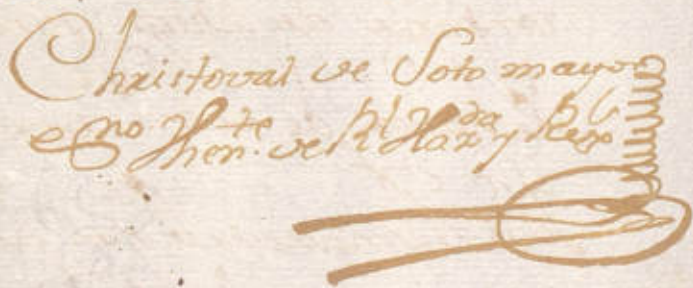 Christoval de Soto mayor
esno Thente de Rl Haz.da y Rexo